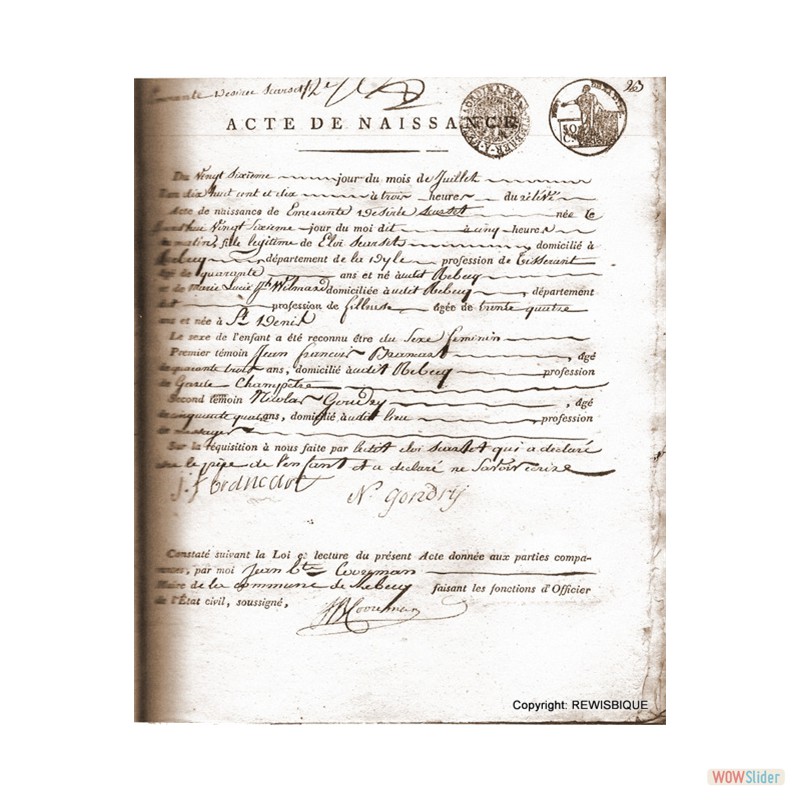 23
ACTE DE NAISSANCE
Du vingt sixième jour du mois de Juillet
l'an dix huit cent et dix à trois heures du
Acte de naissance de Emerante Desirée Scarset née le
vingt sixième jour du mois dit à cinq heures
du matin, fille legitime de Eloi Scarset domicilié à
Rebecq département de la Dyle profession de Tisserant
âgé de quarante ans et né àudit Rebecq
et de Marie Lucie domiciliée audit Rebecq, département
dit profession de fileuse âgée de trente quatre
ans et née à St Denis
Le sexe de l'enfant a été reconnu être du Sexe feminin
Premier témoin Jean francois, âgé
de quarante trois ans, domicilié àudit Rebecq profession
de Garde Champêtre
Second témoin Nicolas Gondry, âgé
de cinquante quatre ans, domicilié àudit lieu, profession
de messager
Sur la réquisition à nous faite par ledit Eloi Scarset qui a declaré
etre le père de l'enfant et a declaré ne savoir ecrire
N. gondry
Constaté suivant la Loi et lecture du présent Acte donnée aux parties compa-
rantes, par moi Jean Bte Cooreman
Maire de la commune de Rebecq faisant les fonctions d'Officier
de l'État civil, soussigné,
JB Cooreman
Copyright: REWISBIQUE
WOWSlider